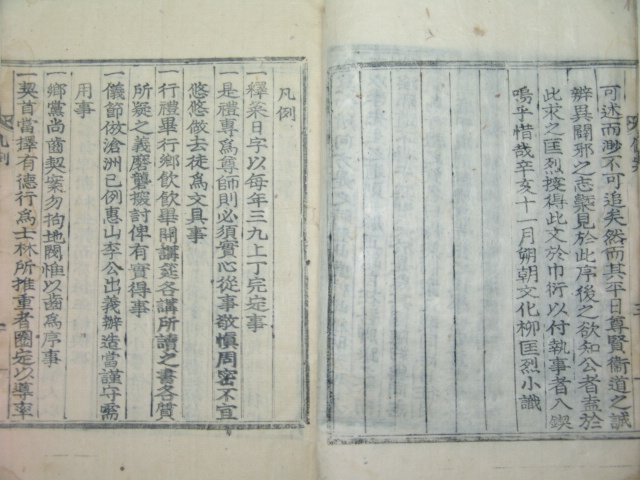 可述而渺不可追矣然而其平日尊賢衞道之誠
辨異闢邪之志槩見於此序後之欲知公者盍於
此求之匡烈搜得此文於巾衍以付執事者入鍥
嗚乎惜哉辛亥十一月朔朝文化柳匡烈小識
凡例
一釋菜日字以每年三九上丁完定事
一是禮專爲尊師則必須實心從事敬愼周密不宜
悠悠做去徒爲文具事
一行禮畢行鄕飮飮畢開講筵各講所讀之書各質
所疑之義磨礱援討俾有實得事
一儀節倣滄洲已例惠山李公出義辦造當謹守需
用事
一鄕黨尚齒契案勿拘地閥惟以齒爲序事
一契首當擇有德行爲士林所推重者圈定以導率
凡例